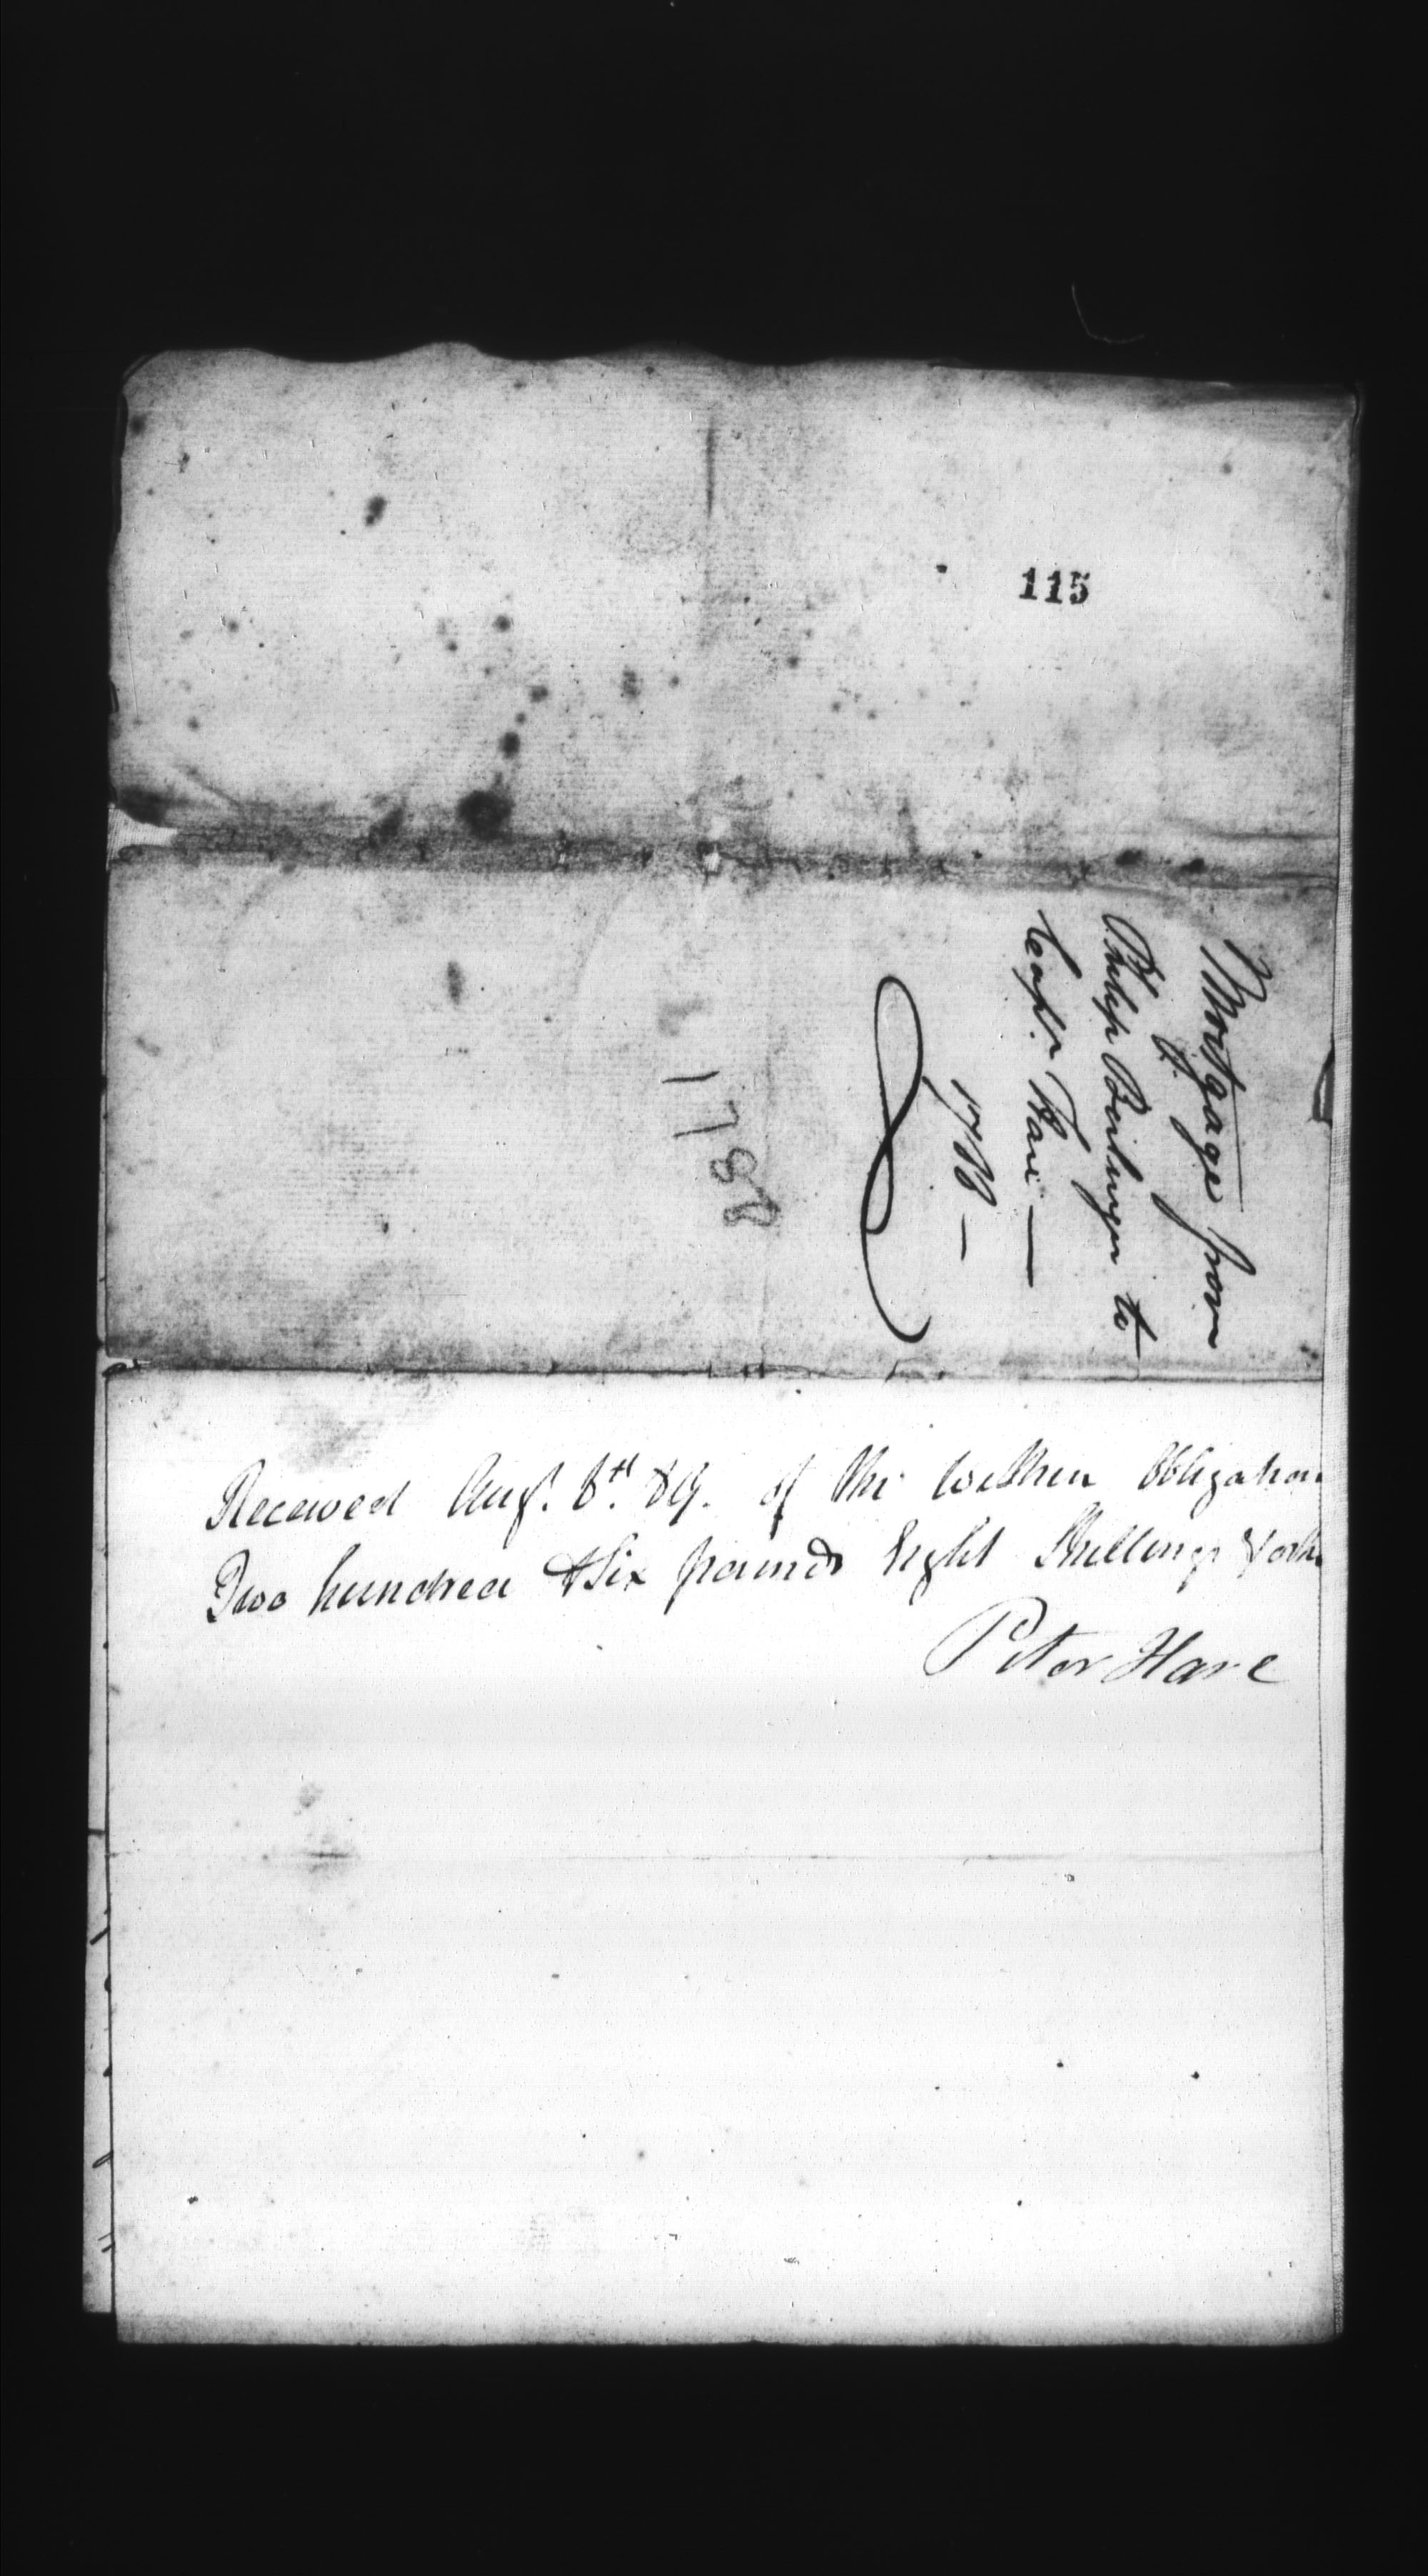 115
Mortgage from
Philip Beilinger to
Capt.n Hare —
1788 —
1788
Received Augt. 8th. 89. of the within Obligation
Two hundred & Six pounds Eight Shillings York
Peter Hare